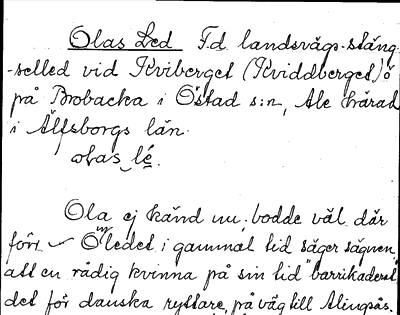 Olas Led F.d. landsvägs-stäng-
-selled vid Kviberget (Kviddberget) ö
på Brobacka i Östad s:n, Ale härad
i Älfsborgs län.
olas lé.
Ola ej känd nu, bodde väl där
förr. Ledet i gammal tid säger sägnen,
att en rådig kvinna på sin tid "barrikaderat"
det för danska ryttare, på väg till Alingsås.